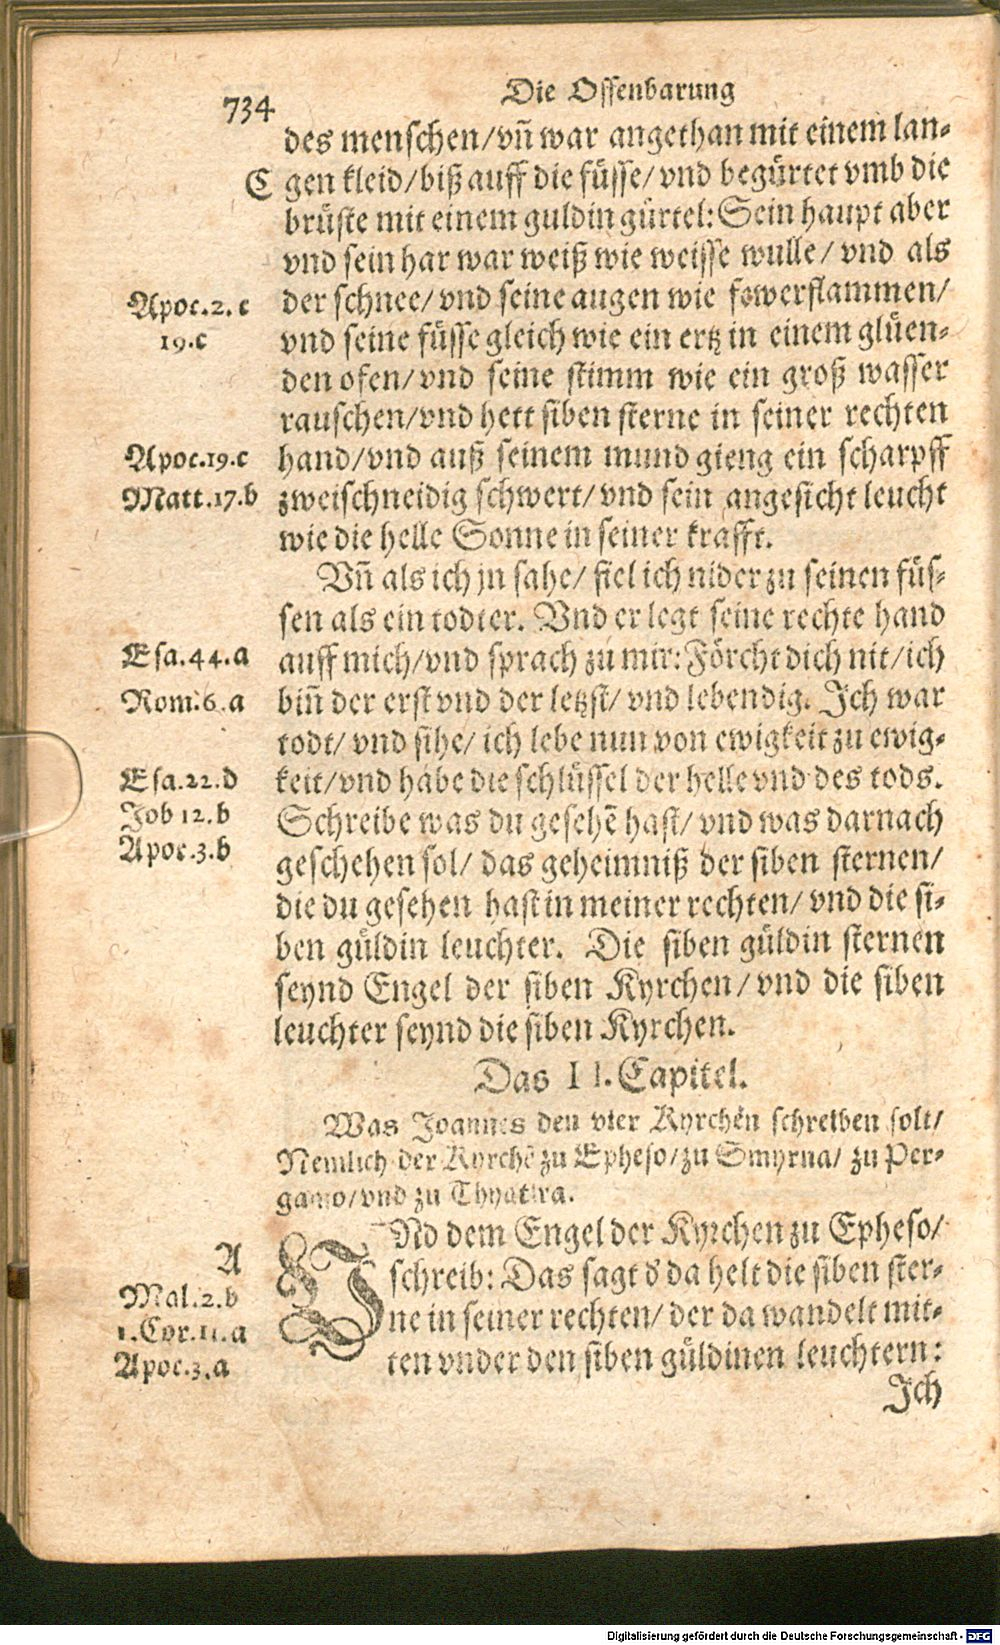 734 Die Offenbarung
des menschen/vñ war angethan mit einem lan-
C gen kleid/biß auff die füsse/vnd begürtet vmb die
brüste mit einem guldin gürtel: Sein haupt aber
vnd sein har war weiß wie weisse wulle/ vnd als
Apoc.2.c der schnee/vnd seine augen wie fewerflammen/
19.c vnd seine füsse gleich wie ein ertz in einem glüen-
den ofen/vnd seine stimm wie ein groß wasser
rauschen/vnd hett siben sterne in seiner rechten
Apoc.19.c hand/vnd auß seinem mund gieng ein scharpff
Matt.17.b zweischneidig schwert/vnd sein angesicht leucht
wie die helle Sonne in seiner krafft.
Vñ als ich jn sahe/ fiel ich nider zu seinen füs-
sen als ein todter. Vnd er legt seine rechte hand
Esa.44.a auff mich/vnd sprach zu mir: Förcht dich nit/ich
Rom.6.a biñ der erst vnd der letzst/ vnd lebendig. Ich war
todt/ vnd sihe/ ich lebe nun von ewigkeit zu ewig-
Esa.22.d keit/vnd habe die schlüssel der helle vnd des tods.
Job 12.b Schreibe was du gesehē hast/ vnd was darnach
Apoc.3.b geschehen sol/ das geheimniß der siben sternen/
die du gesehen hast in meiner rechten/ vnd die si-
ben güldin leuchter. Die siben güldin sternen
seynd Engel der siben Kyrchen/ vnd die siben
leuchter seynd die siben Kyrchen.
Das II. Capitel.
Was Joannes den vier Kyrchen schreiben solt/
Nemlich der Kyrchē zu Epheso/zu Smyrna/ zu Per-
gamo/vnd zu Thyatira.
A VNd dem Engel der Kyrchen zu Epheso/
Mal.2.b schreib: Das sagt d̕ da helt die siben ster-
1.Cor.11.a ne in seiner rechten/ der da wandelt mit-
Apoc.3.a ten vnder den siben güldinen leuchtern:
Ich
Digitalisierung gefördert durch die Deutsche Forschungsgemeinschaft - DFG